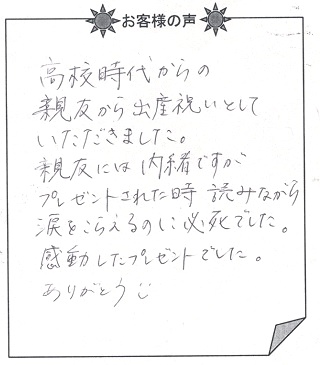 お客様の声
高校時代からの
親友から出産祝いとして
いただきました。
親友には内緒ですが
プレゼントされた時 読みながら
涙をこらえるのに必死でした。
感動したプレゼントでした。
ありがとう